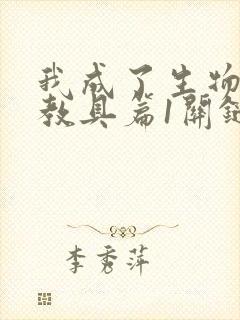 我成了生物
教具篇1關鍵
李秀萍